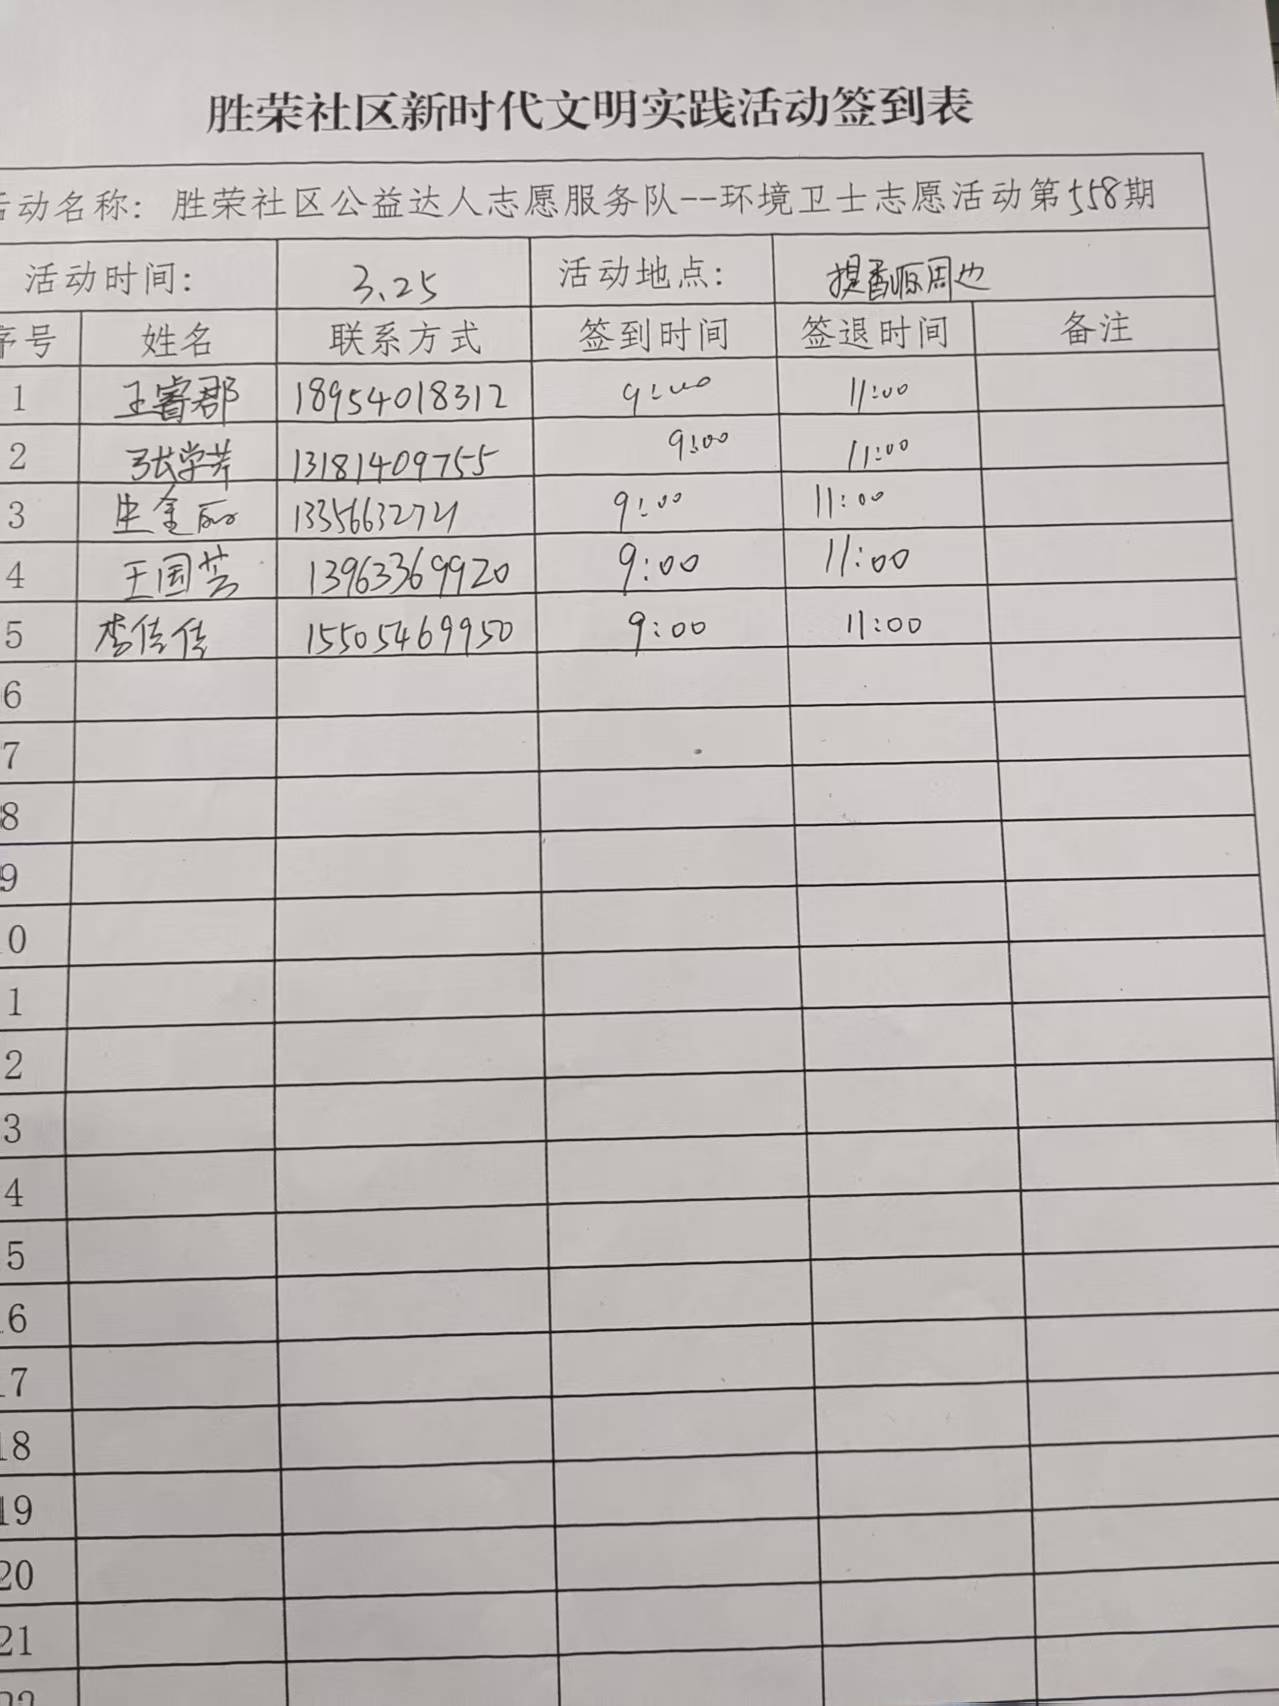 胜荣社区新时代文明实践活动签到表
活动名称：胜荣社区公益达人志愿服务队--环境卫士志愿活动第558期
活动时间： 3.25 活动地点： 提香源周边
序号 姓名 联系方式 签到时间 签退时间 备注
1 王睿郡 18954018312 9:00 11:00
2 张学芳 13181409755 9:00 11:00
3 金 9:00 11:00
4 王国芸 13963369920 9:00 11:00
5 李佳佳 15505469950 9:00 11:00
6
7
8
9
0
1
2
3
4
5
6
7
18
19
20
21
22